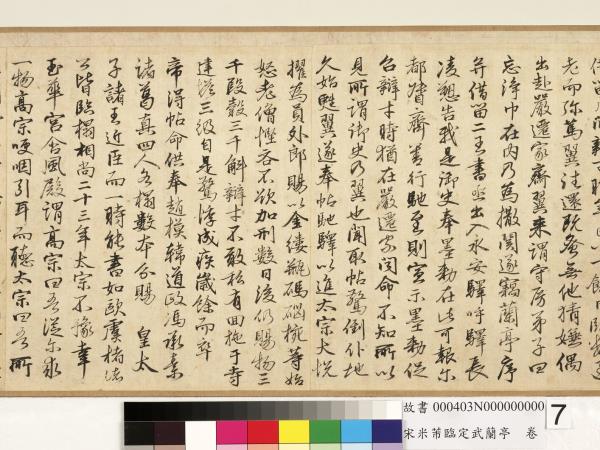 老而弥篤翼往還既密無他猜嫌偶
出赴嚴遷家齋翼來謂守房弟子曰
忘淨巾在内乃為撤開遂竊蘭亭序
并借留二王書亟出入永安驛呼驛長
凌愬告我是御史奉墨勅在此可報尔
都督齊善行馳至則宣示墨勅促
召辯才時猶在嚴遷家聞命不知所以
見所謂御史乃翼也聞取帖驚倒仆地
久始甦翼遂奉帖馳驛以進太宗大悦
擢為員外郎賜以金縷瓶碼碯椀等始
怒老僧慳吝不欲加刑數日後仍賜物三
千段縠三千斛辯才不敢私有回施于寺
建塔三級自是驚悸成疾歲餘而卒
帝得帖命供奉趙模韓道政馮承素
諸葛真四人各搨數本分賜 皇太
子諸王近臣而一時能書如歐虞褚諸
公皆臨搨相尚二十三年太宗不豫幸
玉華宮含風殿謂高宗曰吾從尔求
一物高宗哽咽引耳而聽太宗曰吾所
故書 000403N000000000
宋米芾臨定武蘭亭 卷
7